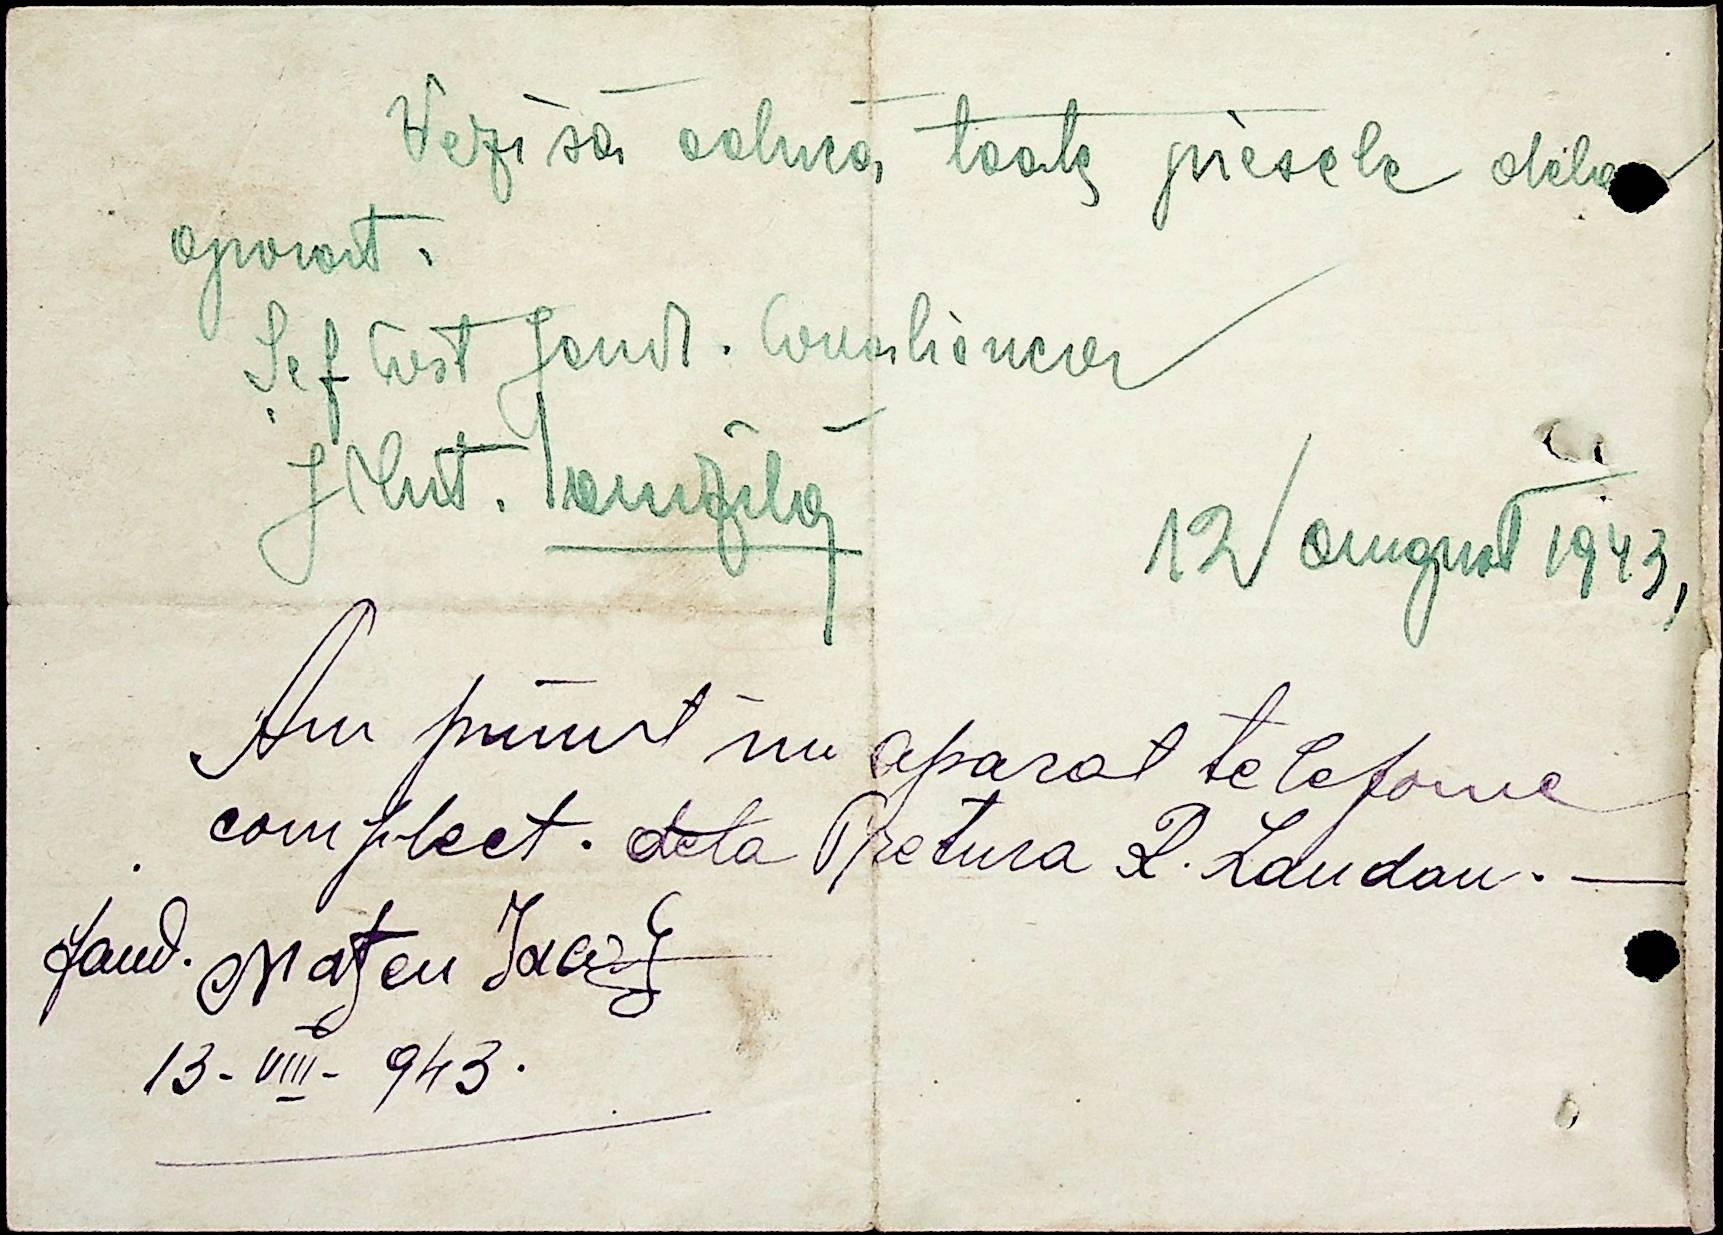 Vezi să aducă toate piesele dela
aparat.
Șef Post Jand. Covaleanca
12/ august 1943,
Am primit un aparat telefonic
complect. dela Pretura R. Landau. —
Jand. Mațeu
13-VIII-943.